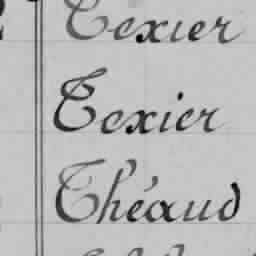 Texier
Texier
Théaud